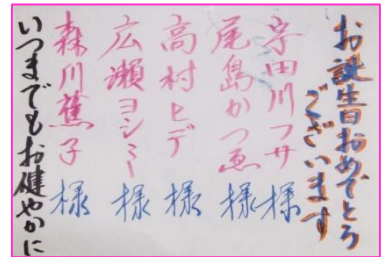 お誕生日おめでとう
ございます
宇田川フサ様
尾島かつゑ様
高村ヒデ様
広瀬ヨシミ様
森川蕉子様
いつまでもお健やかに